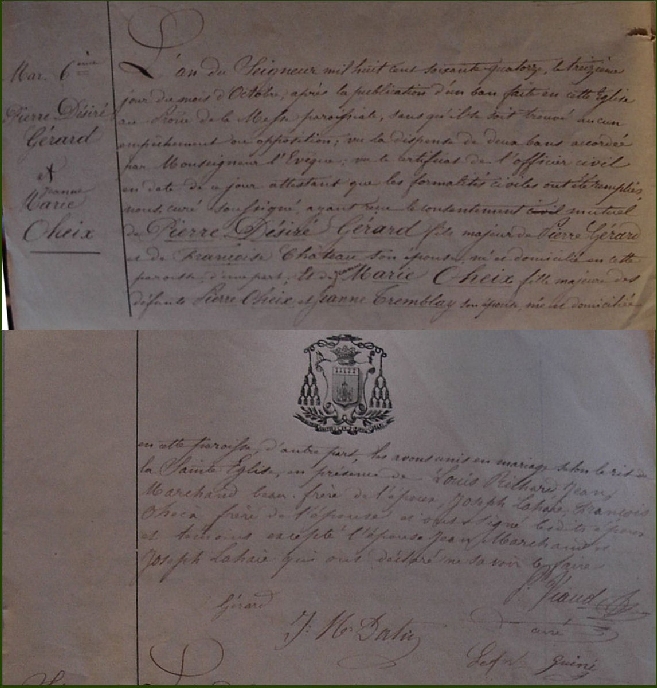 Mar. 6ème
Pierre Désiré
Gérard
et
Jeanne
Marie
Cheix
L'an du Seigneur mil huit cent soixante quatorze, le treizième
jour du mois d'Octobre, après la publication d'un ban faite en cette Eglise
au Prône de la Messe paroissiale, sans qu'il se soit trouvé aucun
empêchement ou opposition; vu la dispense de deux bans accordée
par Monseigneur l'Evêque; vu le certificat de l'officier civil
en date de ce jour attestant que les formalités civiles ont été remplies
nous, curé soussigné, ayant reçu le consentement civil mutuel
de Pierre Désiré Gérard fils majeur de Pierre Gérard
et de Françoise Château son épouse, né et domicilié en cette
paroisse, d'une part; Et de Marie Cheix fille majeure des
défunts Pierre Cheix et Jeanne Tremblay son épouse, née et domiciliée
en cette paroisse, d'autre part, les avons unis en mariage selon le rit de
la Sainte Eglise, en présence de Louis Jean
Marchand beau-frère de l'époux, Joseph Lahaie, François
Cheix frère de l'épouse
et témoins excepté l'épouse Jean Marchand et
Joseph Lahaie qui ont déclaré ne savoir le faire
Gérard
curé